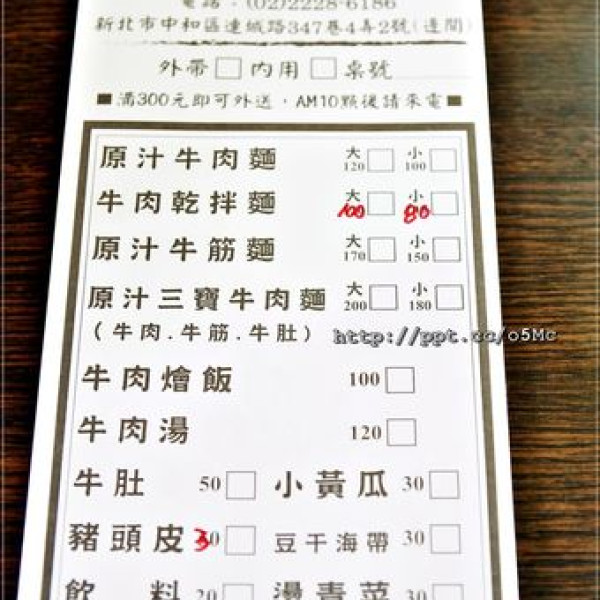 電話：(02)2228-6186
新北市中和區連城路347巷4弄2號(邊間)
外帶□ 內用□ 桌號
■滿300元即可外送，AM10點後請來電■
原汁牛肉麵 大120□ 小100□
牛肉乾拌麵 大100□ 小80□
原汁牛筋麵 大170□ 小150□
原汁三寶牛肉麵 大200□ 小180□
(牛肉.牛筋.牛肚) http://ppt.cc/o5Mc
牛肉燴飯 100□
牛肉湯 120□
牛肚 50□ 小黃瓜 30□
豬頭皮 30□ 豆干海帶 30□
飲料 20□ 燙青菜 30□